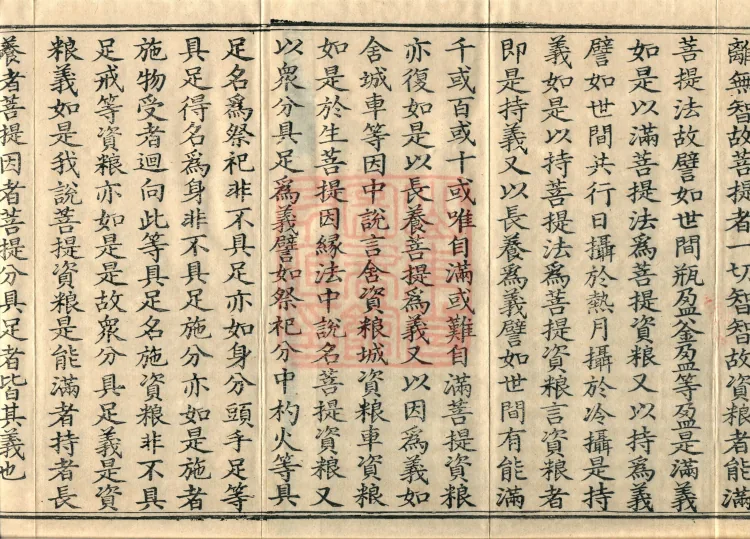 離無智故菩提者一切智智故資粮者能滿
菩提法故譬如世間瓶盈釜盈等盈是滿義
如是以滿菩提法為菩提資粮又以持為義
譬如世間共行日攝於熱月攝於冷攝是持
義如是以持菩提法為菩提資粮言資粮者
即是持義又以長養為義譬如世間有能滿
千或百或十或唯自滿或難自滿菩提資粮
亦復如是以長養菩提為義又以因為義如
舍城車等因中說言舍資粮城資粮車資粮
如是於生菩提因緣法中說名菩提資粮又
以衆分具足為義譬如祭祀分中杓火等具
足名為祭祀非不具足亦如身分頭手足等
具足得名為身非不具足施分亦如是施者
施物受者迴向此等具足名施資粮非不具
足戒等資粮亦如是是故衆分具足義是資
粮義如是我說菩提資粮是能滿者持者長
養者菩提因者菩提分具足者皆其義也